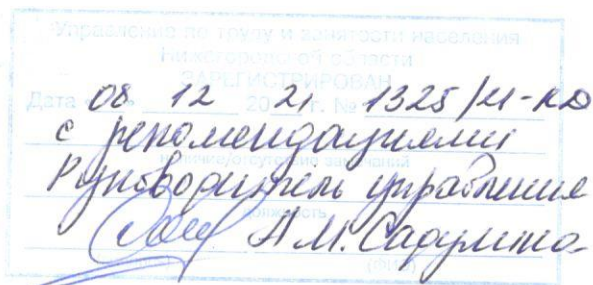 Управление по труду и занятости населения
Нижегородской области
ЗАРЕГИСТРИРОВАН
Дата 08 12 2021 г. № 1325/21-КД
с рекомендациями
наличие/отсутствие замечаний
Руководитель управления
должность
А.М. Садулина
(ФИО)